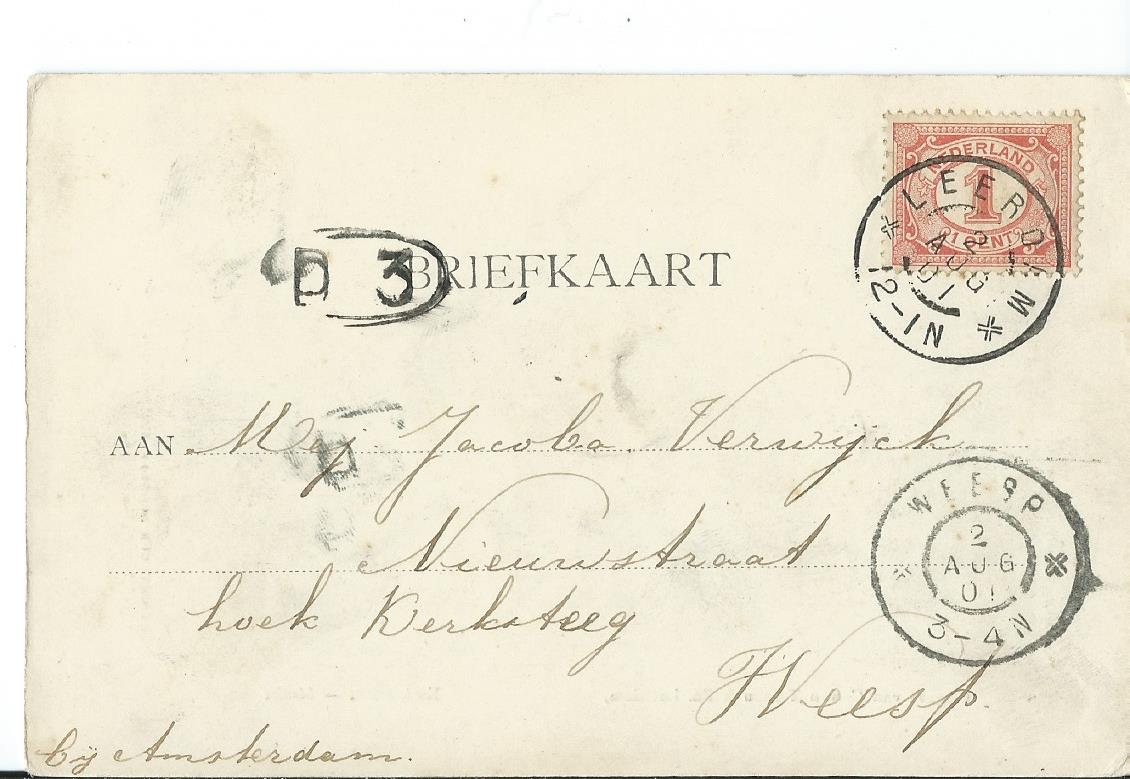 NEDERLAND
1
1 CENT
LEERDAM
2
AUG
01
12-1N
D 3
BRIEFKAART
AAN Mej Jacoba Verwijck
Nieuwstraat
hoek Kerksteeg
Weesp.
bij Amsterdam.
WEESP
2
AUG
01
3-4N